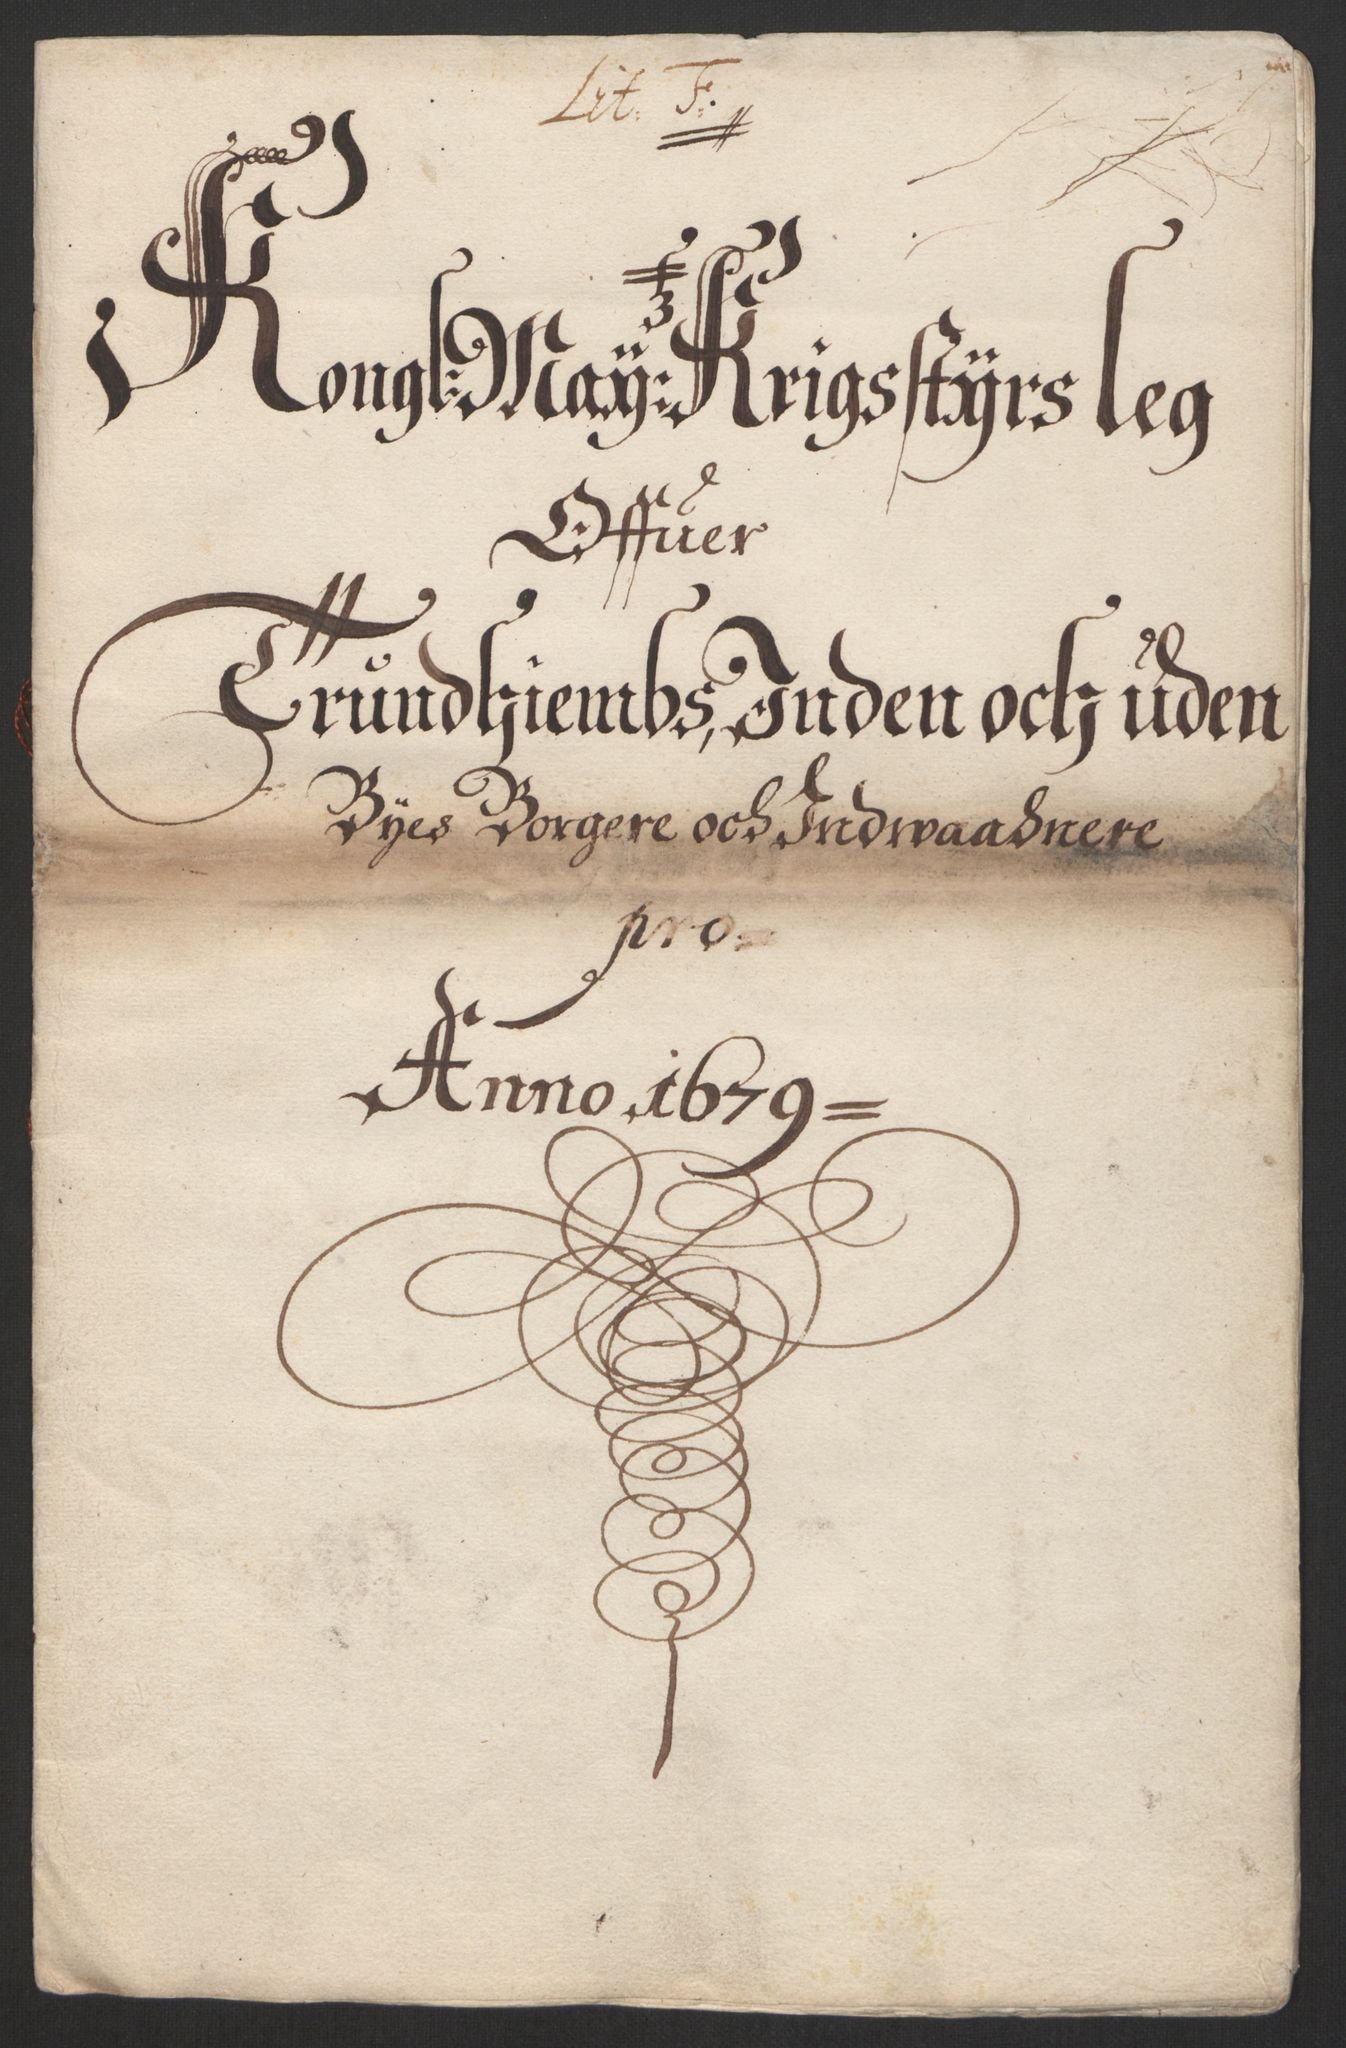 Lit. F.
Kongl: May:tz Krigsstÿrs leg
Offuer
Trundhiembs, Inden och uden
Byes Borgere och Indwaahnere
pro.
Anno 1679=